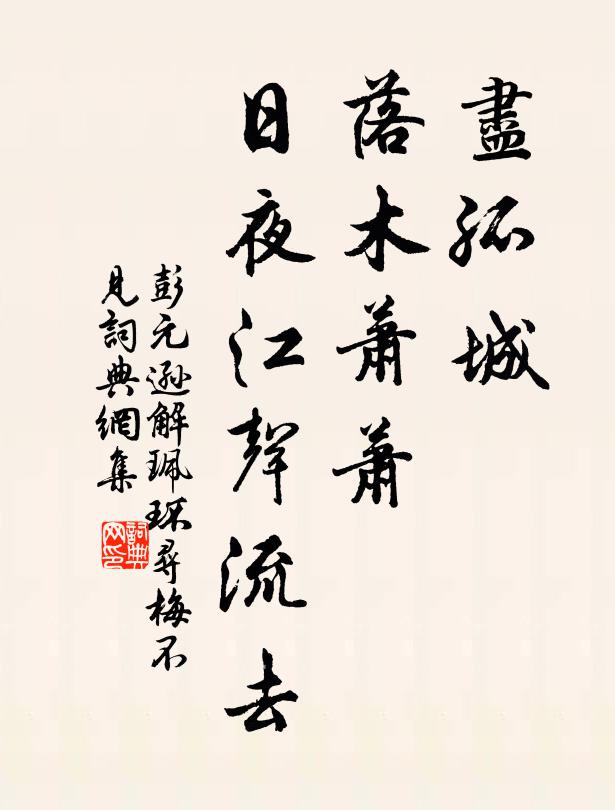 盡孤城
落木蕭蕭
日夜江聲流去
彭元遜解珮環尋梅不
見詞典網集
詞典
网印